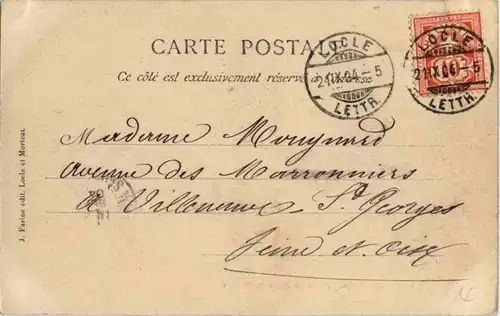 CARTE POSTALE
Ce côté est exclusivement réservé à l'adresse.
LOCLE
21.IX.04-5
LETTR.
LOCLE
21.IX.04-5
LETTR.
Madame
avenue des Marronniers
à Villeneuve St Georges
Seine et Oise
J. Farine édit. Locle et Morteau